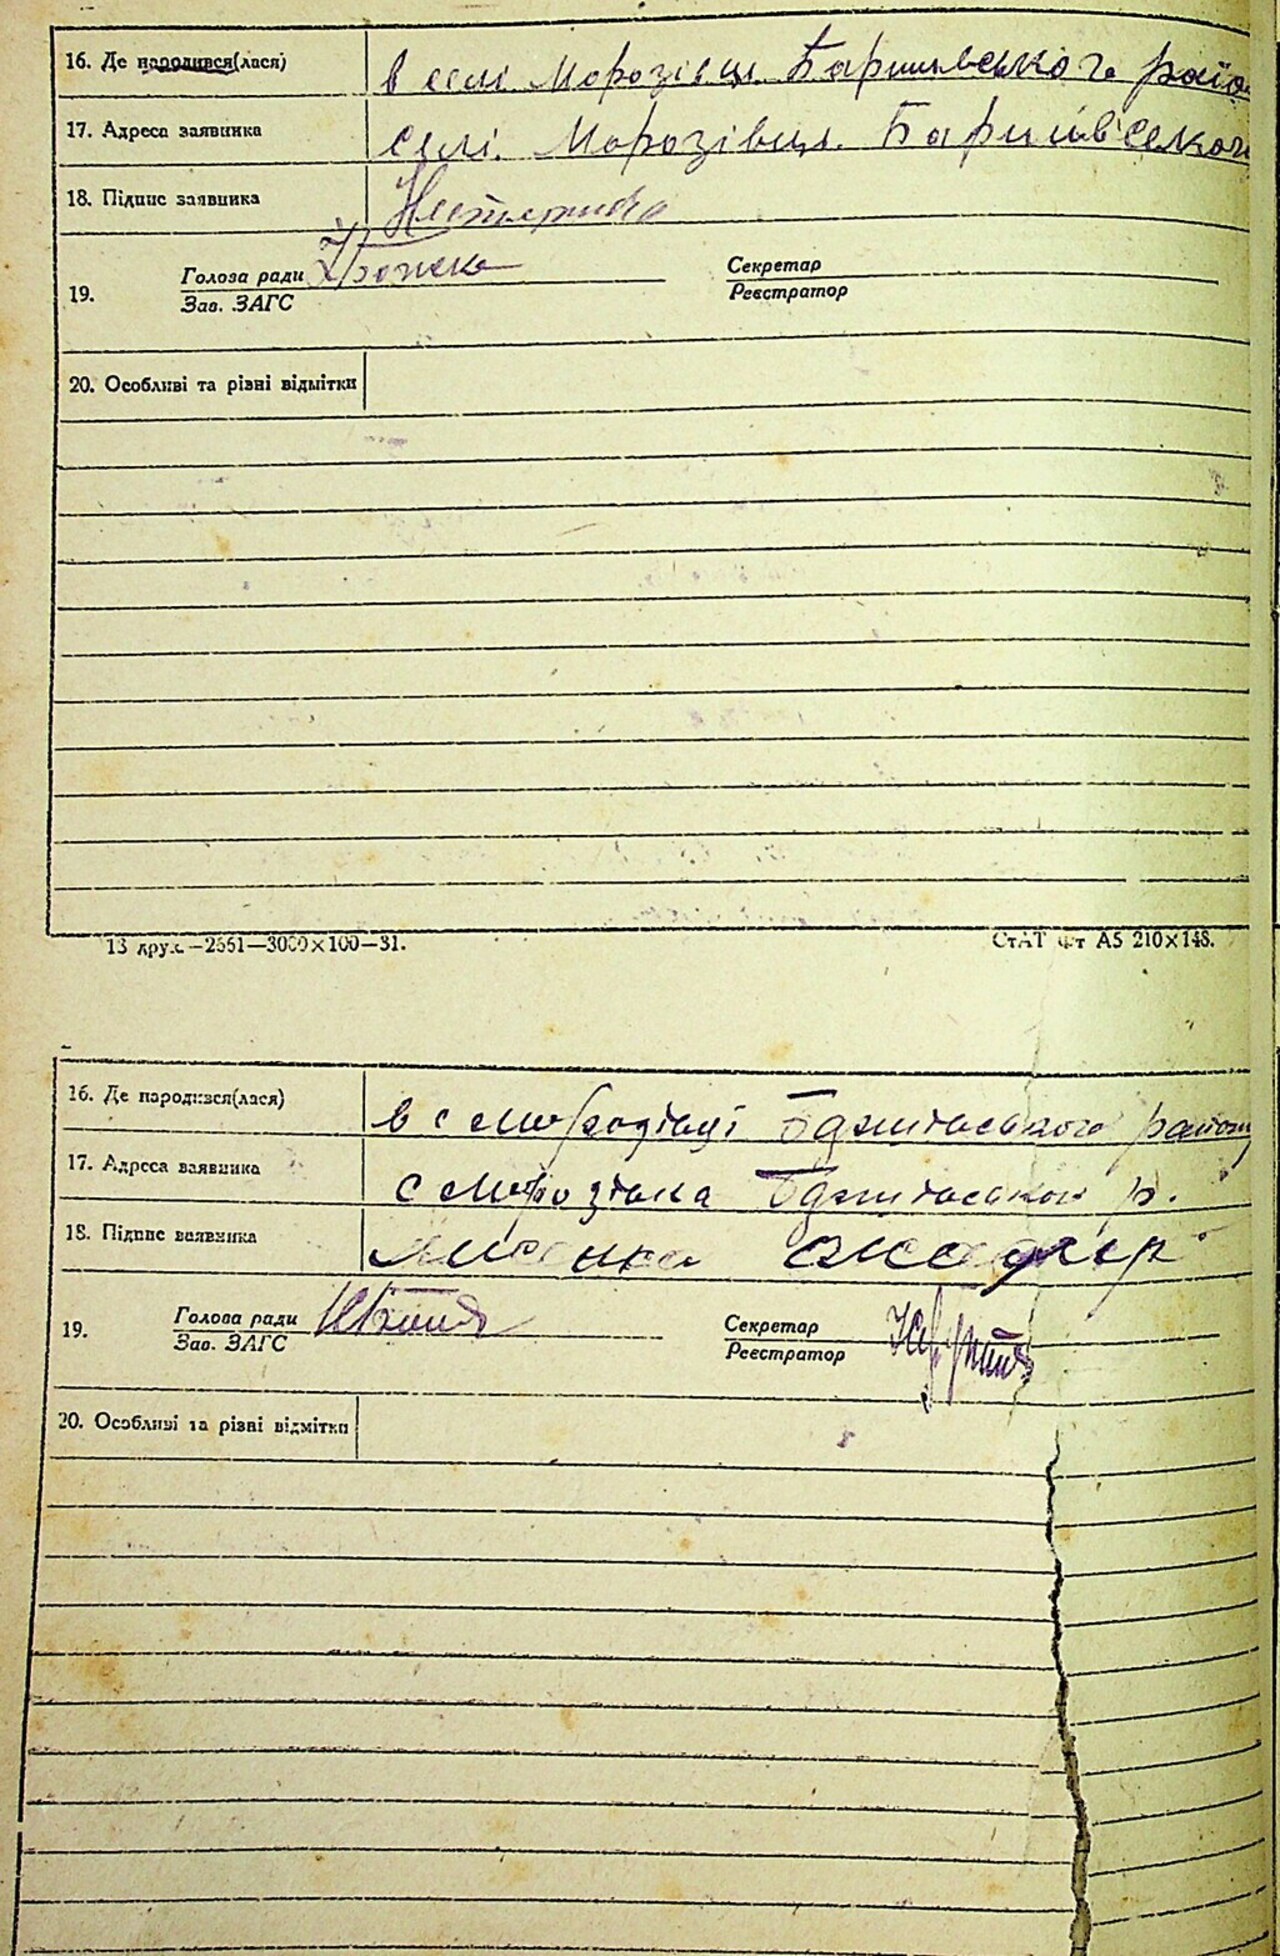 16. Де народився(лася) в селі Морозівці Баришівського райо
17. Адреса заявника селі. Морозівці. Баришівсекого
18. Підпис заявника
Голова ради Секретар
19.
Зав. ЗАГС Реєстратор
20. Особливі та різні відмітки
13 друк.—2651—3000×100—31. СтАТ фт А5 210×148.
16. Де народився(лася) в с Морозівці Баришівського району
17. Адреса заявника с Морозівка Баришівськог р.
18. Підпис заявника
Голова ради Секретар
19.
Зав. ЗАГС Реєстратор
20. Особливі та різні відмітки